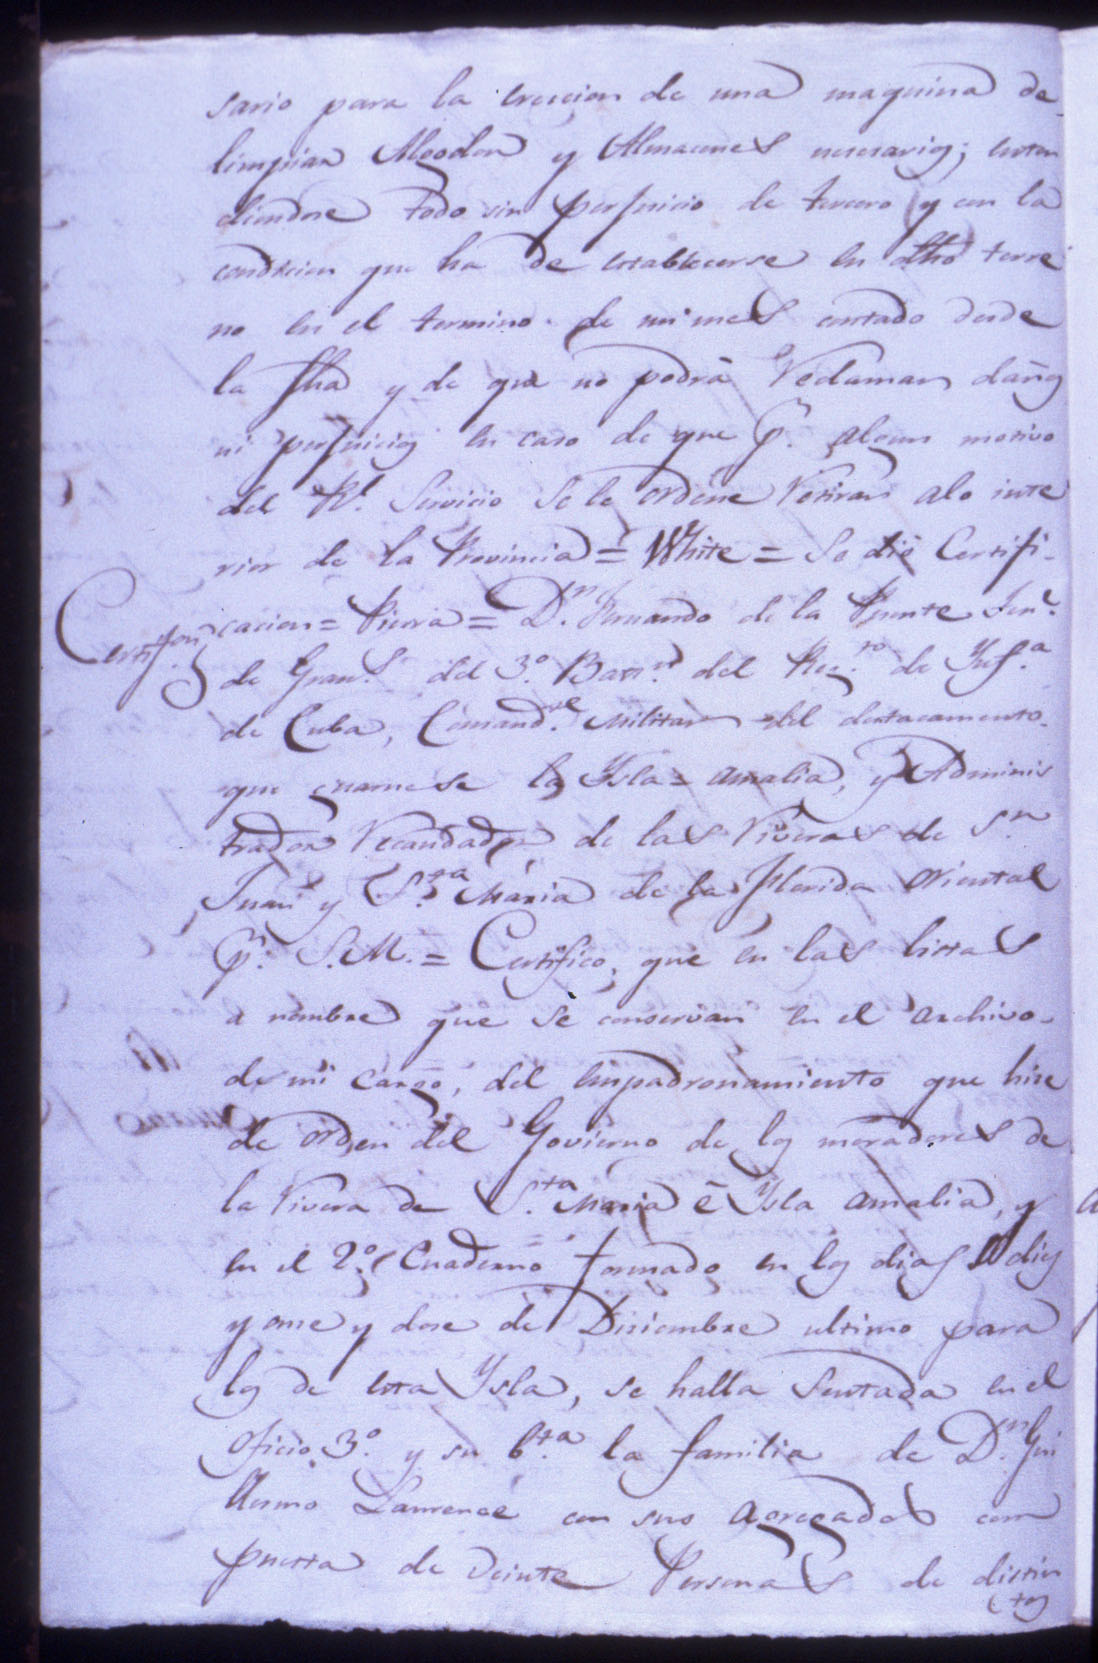 sario para la ereccion de una maquina de
limpiar Algodon y Almacenes necesarios; enten
diendose todo sin perjuicio de tercero y con la
condicion que ha de establecerse en dho terre
no en el termino de un mes contado desde
la fha y de que no podrá reclamar daños
ni perjuicios en caso de que pr. algun motivo
del Rl. Servicio se le ordene retirar alo inte
rior de la Provincia = White = Se dió Certifi-
Certifon
cacion = Pierra = Dn. Fernando de la Puente Tente.
de Grans. del 3º. Batn. del Regto. de Infa.
de Cuba, Comandte. Militar del destacamento
que guarnese la Ysla = Amalia, y Adminis
trador recaudador de las Riveras de Sn
Juan y Sta. Maria de la Florida Oriental
pr. S.M. = Certifico, que en las listas
a nombre que se conservan en el archivo
de mi cargo, del empadronamiento que hise
de orden del Govierno de los moradores de
la rivera de Sta. Maria é Ysla Amalia, y
en el 2º. Cuaderno formado en los dias dies
y onse y dose de Disiembre ultimo para
los de esta Ysla, se halla sentada en el
oficio 3º. y su 6ta. la familia de Dn. Gui
llermo Lawrence con sus agregados com
puesta de veinte Personas de distin
tos